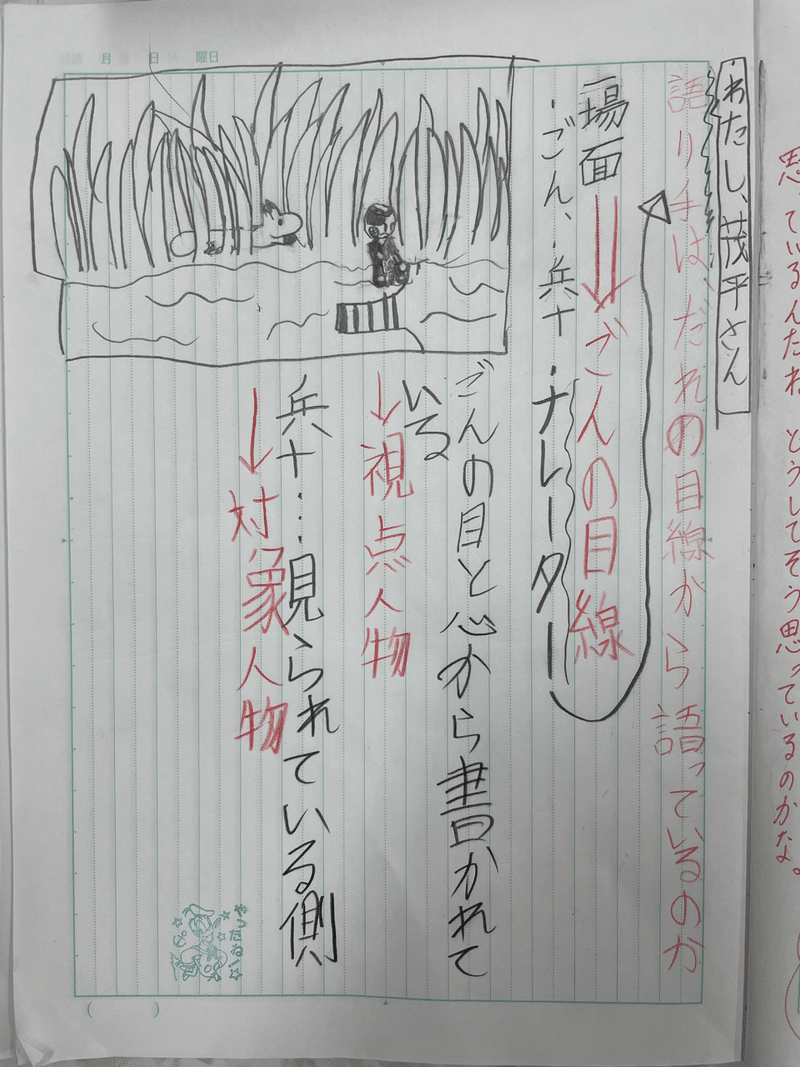 思っているんだね どうしてそう思っているのかな。
・わたし、茂平さん
語り手は、だれの目線から語っているのか
一場面→ごんの目線
・ごん、・兵十・ナレーター
ごんの目と心から書かれて
いる
→視点人物
兵十…見られている側
→対象人物
月 日 曜日
やったね！
( )